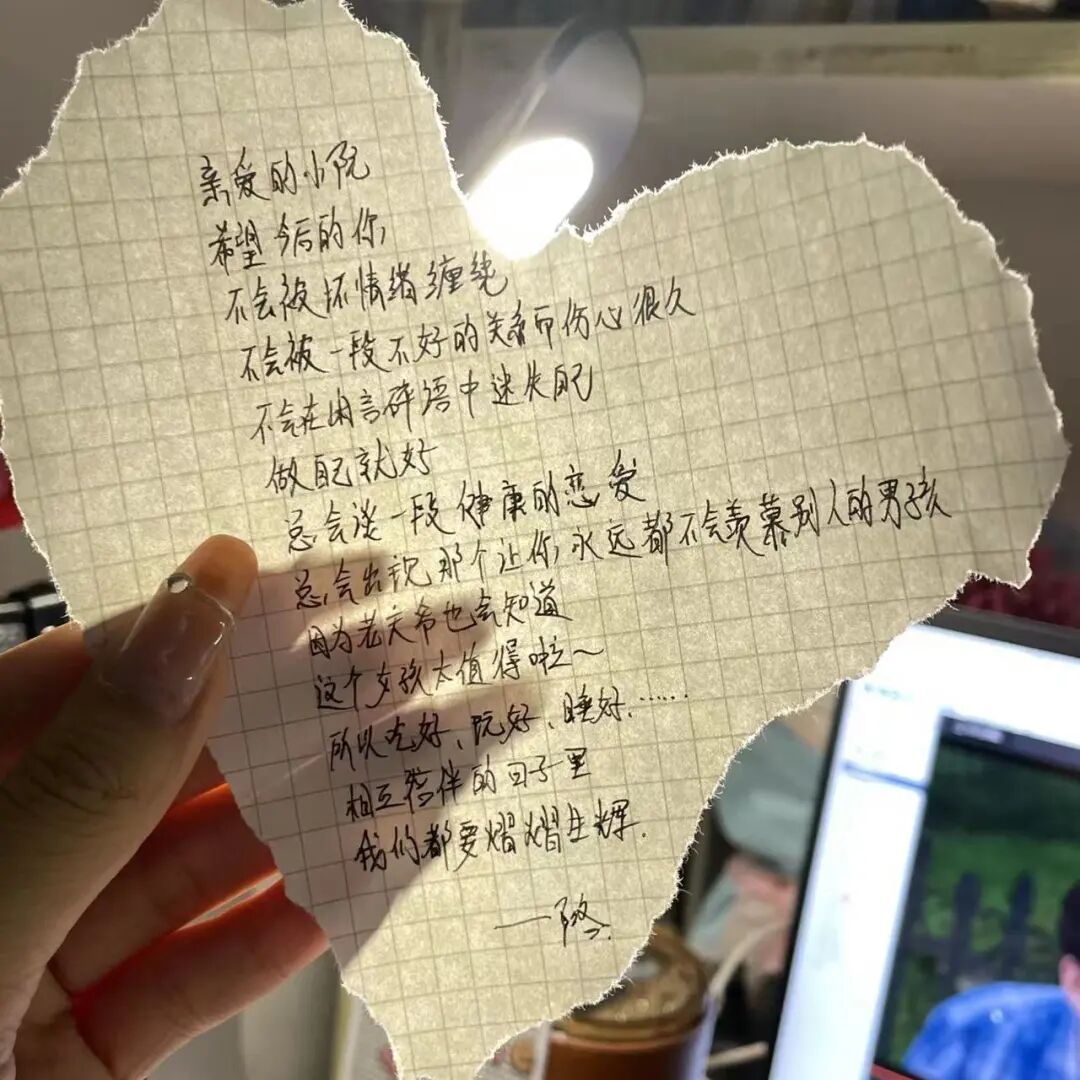 亲爱的小阮
希望今后的你
不会被坏情绪缠绕
不会被一段不好的关系而伤心很久
不会在闲言碎语中迷失自己
做自己就好
总会谈一段健康的恋爱
总会出现那个让你永远都不会羡慕别人的男孩
因为老天爷也会知道
这个女孩太值得啦～
所以吃好、阮好、睡好、……
相互陪伴的日子里
我们都要熠熠生辉.